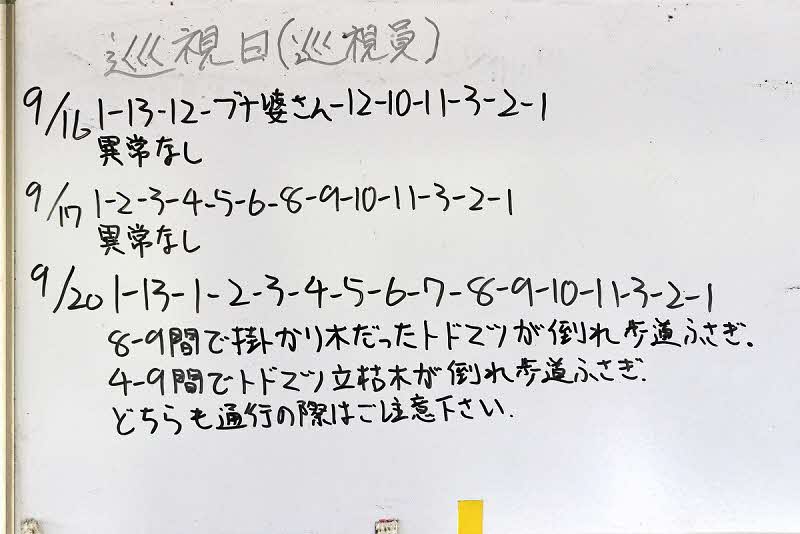 巡視日(巡視員)
9/16 1-13-12-ブナ婆さん-12-10-11-3-2-1
異常なし
9/17 1-2-3-4-5-6-8-9-10-11-3-2-1
異常なし
9/20 1-13-1-2-3-4-5-6-7-8-9-10-11-3-2-1
8-9間で掛かり木だったトドマツが倒れ歩道ふさぎ.
4-9間でトドマツ立枯木が倒れ歩道ふさぎ.
どちらも通行の際はご注意下さい.